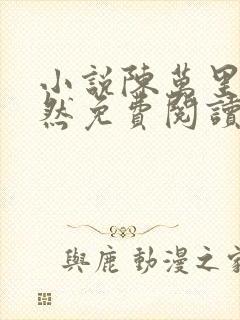 小説陳萬里
然免費閱讀
與鹿 動漫之家